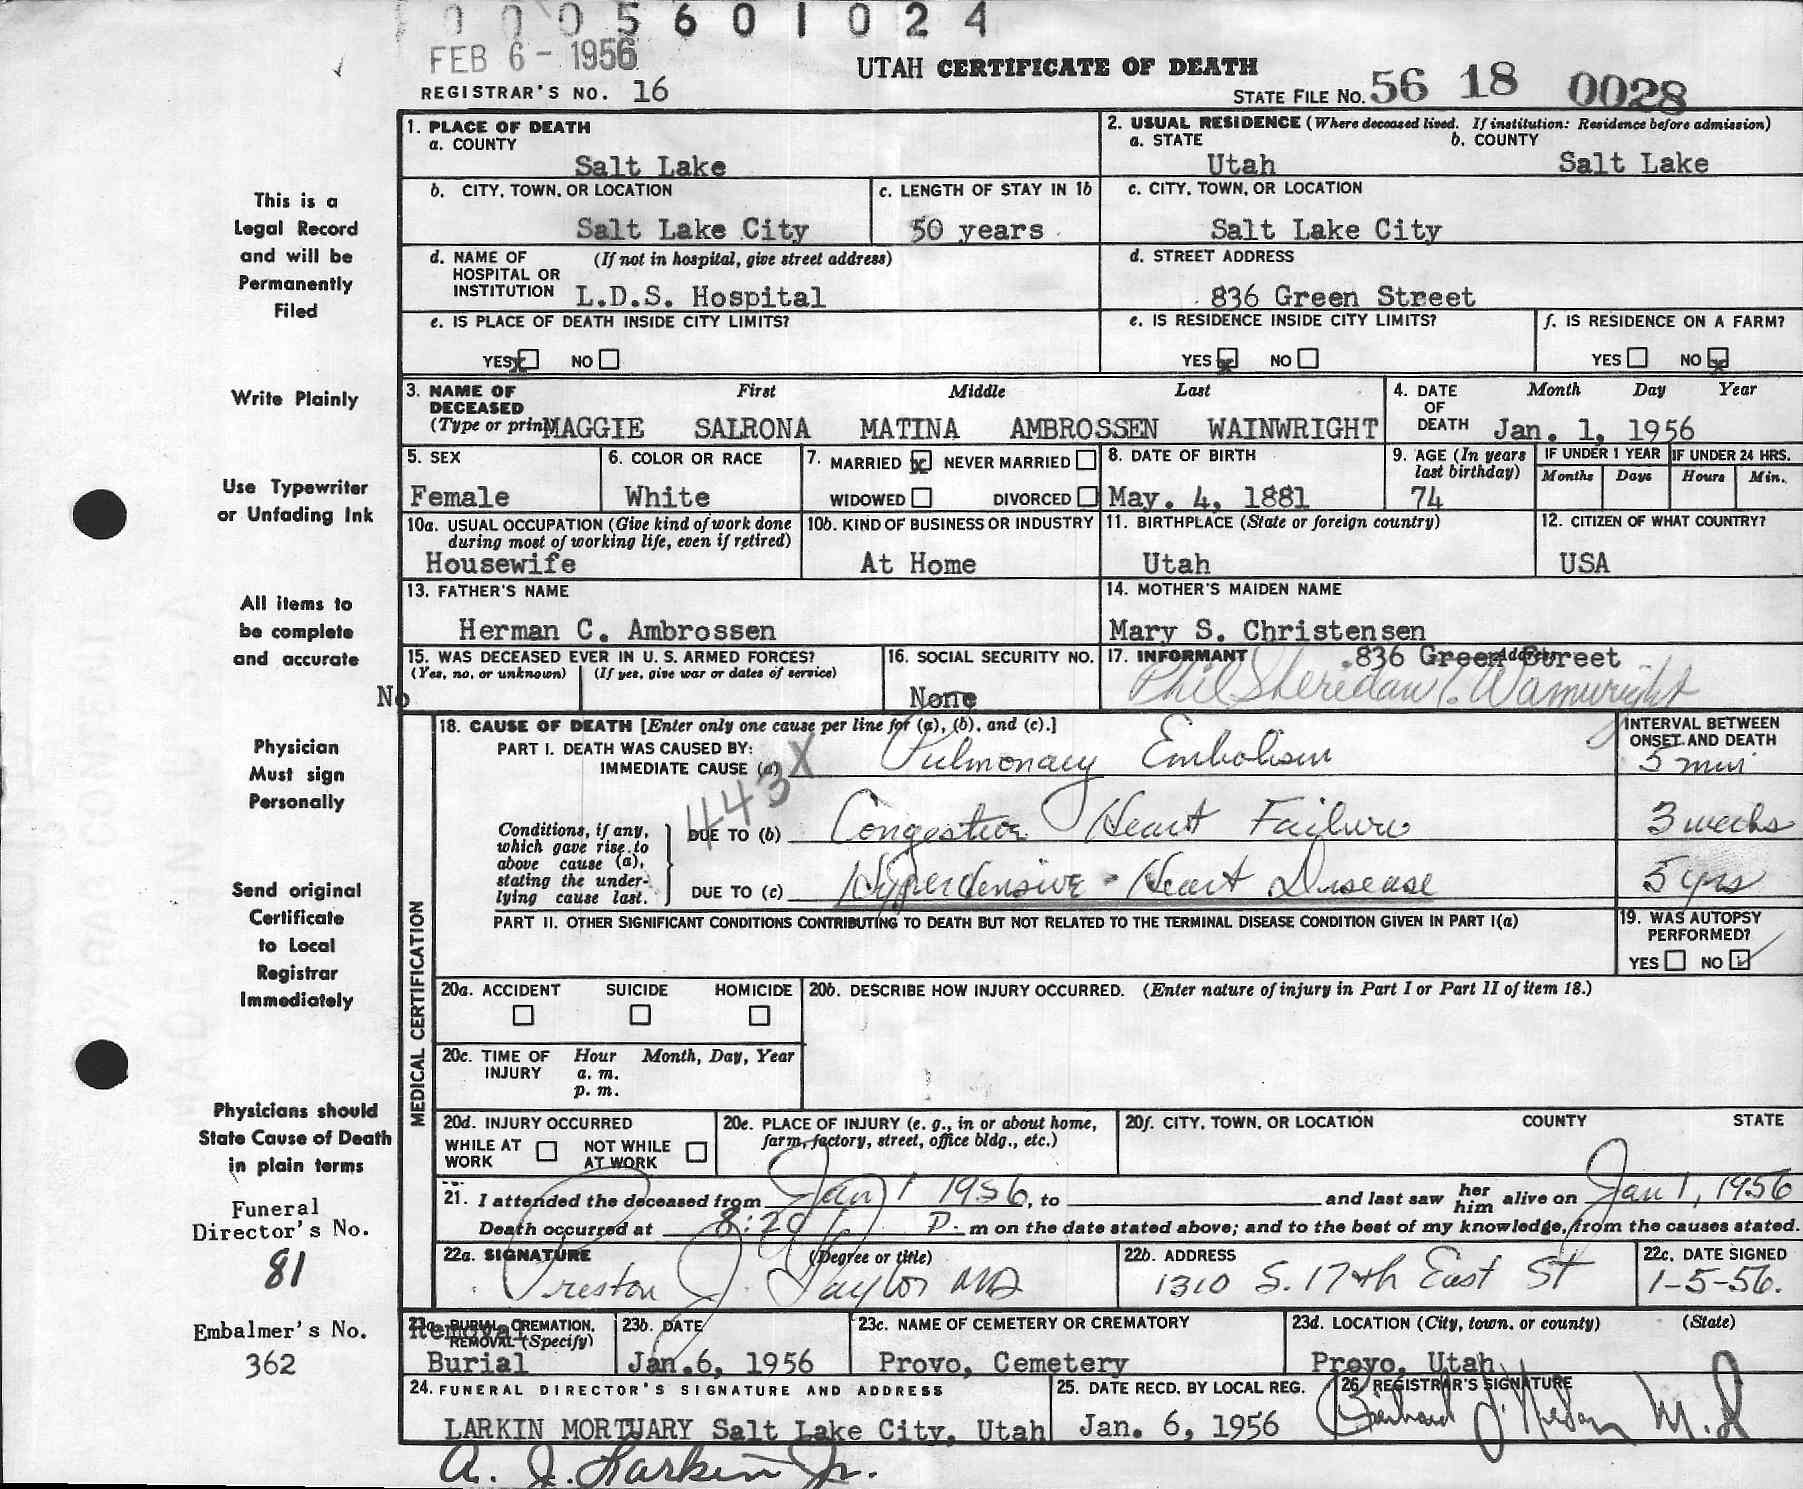 0005601024
FEB 6 - 1956
UTAH CERTIFICATE OF DEATH
REGISTRAR'S NO. 16
STATE FILE NO. 56 18 0028
This is a
Legal Record
and will be
Permanently
Filed
Write Plainly
Use Typewriter
or Unfading Ink
All items to
be complete
and accurate
Physician
Must sign
Personally
Send original
Certificate
to Local
Registrar
Immediately
Physicians should
State Cause of Death
in plain terms
Funeral
Director's No.
81
Embalmer's No.
362
1. PLACE OF DEATH
a. COUNTY
Salt Lake
2. USUAL RESIDENCE (Where deceased lived. If institution: Residence before admission)
a. STATE b. COUNTY
Utah Salt Lake
b. CITY, TOWN, OR LOCATION
Salt Lake City
c. LENGTH OF STAY IN 1b
50 years
c. CITY, TOWN, OR LOCATION
Salt Lake City
d. NAME OF (If not in hospital, give street address)
HOSPITAL OR
INSTITUTION L.D.S. Hospital
d. STREET ADDRESS
836 Green Street
e. IS PLACE OF DEATH INSIDE CITY LIMITS?
YES x NO
e. IS RESIDENCE INSIDE CITY LIMITS?
YES x NO
f. IS RESIDENCE ON A FARM?
YES NO x
3. NAME OF First Middle Last
DECEASED
(Type or print) MAGGIE SALRONA MATINA AMBROSSEN WAINWRIGHT
4. DATE Month Day Year
OF
DEATH Jan. 1, 1956
5. SEX
Female
6. COLOR OR RACE
White
7. MARRIED x NEVER MARRIED
WIDOWED DIVORCED
8. DATE OF BIRTH
May. 4, 1881
9. AGE (In years
last birthday)
74
IF UNDER 1 YEAR IF UNDER 24 HRS.
Months Days Hours Min.
10a. USUAL OCCUPATION (Give kind of work done
during most of working life, even if retired)
Housewife
10b. KIND OF BUSINESS OR INDUSTRY
At Home
11. BIRTHPLACE (State or foreign country)
Utah
12. CITIZEN OF WHAT COUNTRY?
USA
13. FATHER'S NAME
Herman C. Ambrossen
14. MOTHER'S MAIDEN NAME
Mary S. Christensen
15. WAS DECEASED EVER IN U. S. ARMED FORCES?
(Yes, no, or unknown) (If yes, give war or dates of service)
No
16. SOCIAL SECURITY NO.
None
17. INFORMANT Address
836 Green Street
Phil Sheridan Wainwright
MEDICAL CERTIFICATION
18. CAUSE OF DEATH [Enter only one cause per line for (a), (b), and (c).]
INTERVAL BETWEEN
ONSET AND DEATH
PART I. DEATH WAS CAUSED BY:
IMMEDIATE CAUSE (a) Pulmonary Embolism 5 min
443X
Conditions, if any,
which gave rise to
above cause (a),
stating the under-
lying cause last.
DUE TO (b) Congestive Heart Failure 3 weeks
DUE TO (c) Hypertensive - Heart Disease 5 yrs
PART II. OTHER SIGNIFICANT CONDITIONS CONTRIBUTING TO DEATH BUT NOT RELATED TO THE TERMINAL DISEASE CONDITION GIVEN IN PART I(a)
19. WAS AUTOPSY
PERFORMED?
YES NO ✓
20a. ACCIDENT SUICIDE HOMICIDE
20b. DESCRIBE HOW INJURY OCCURRED. (Enter nature of injury in Part I or Part II of item 18.)
20c. TIME OF Hour Month, Day, Year
INJURY a. m.
p. m.
20d. INJURY OCCURRED
WHILE AT NOT WHILE
WORK AT WORK
20e. PLACE OF INJURY (e. g., in or about home,
farm, factory, street, office bldg., etc.)
20f. CITY, TOWN, OR LOCATION COUNTY STATE
21. I attended the deceased from Jan 1 1956, to and last saw her him alive on Jan 1, 1956
Death occurred at 8:20 P. m on the date stated above; and to the best of my knowledge, from the causes stated.
22a. SIGNATURE (Degree or title)
Preston J. Taylor MD
22b. ADDRESS
1310 S. 17th East St
22c. DATE SIGNED
1-5-56.
23a. BURIAL, CREMATION,
REMOVAL (Specify)
Removal
Burial
23b. DATE
Jan. 6, 1956
23c. NAME OF CEMETERY OR CREMATORY
Provo, Cemetery
23d. LOCATION (City, town, or county) (State)
Provo, Utah
24. FUNERAL DIRECTOR'S SIGNATURE AND ADDRESS
LARKIN MORTUARY Salt Lake City, Utah
A. J. Larkin Jr.
25. DATE RECD. BY LOCAL REG.
Jan. 6, 1956
26. REGISTRAR'S SIGNATURE
M.D.